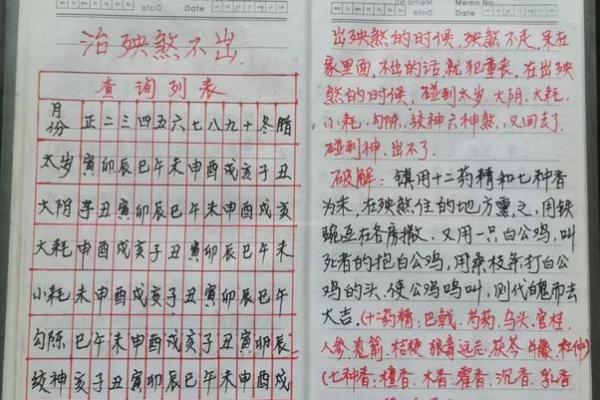 Date
治殃煞不出
查询列表
月份 正 二 三 四 五 六 七 八 九 十 冬 腊
太岁 寅 卯 辰 巳 午 未 申 酉 戌 亥 子 丑
大阴 子 丑 寅 卯 辰 巳 午 未 申 酉 戌 亥
大耗 申 酉 戌 亥 子 丑 寅 卯 辰 巳 午 未
小耗 未 申 酉 戌 亥 子 丑 寅 卯 辰 巳 午
勾陈 巳 午 未 申 酉 戌 亥 子 丑 寅 卯 辰
绞神 亥 子 丑 寅 卯 辰 巳 午 未 申 酉 戌
Memo No.
Date
出殃煞的时候,殃煞不走,呆在
家里面,不出的话就犯重丧,在出殃
煞的时候,碰到太岁.大阴.大耗.
小耗.勾陈,绞神六神煞,又回去了.
碰到神,出不了.
破解:镇用十二药精和七种香
为末,在殃煞住的地方熏之,用铁
豌豆在各房撒,又用一只白公鸡,叫
死者的抱白公鸡,用桑枝条打白公
鸡的头,使公鸡鸣叫,则代魄而去
大吉.(十二药精:巴戟.芍药.乌头.官桂.
人参.鬼箭.桔梗.狼毒.远志.茯苓.牛膝.杜仲)
(七种香:檀香.木香.藿香.沉香.乳香